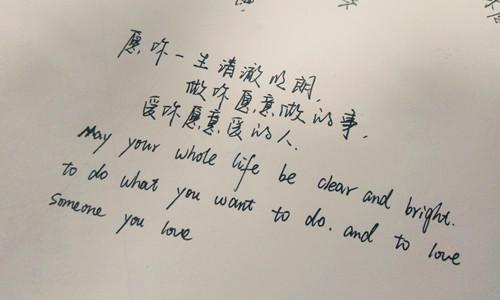 愿你一生清澈明朗,
做你愿意做的事,
爱你愿意爱的人.
May your whole life be clear and bright.
to do what you want to do. and to love
someone you love